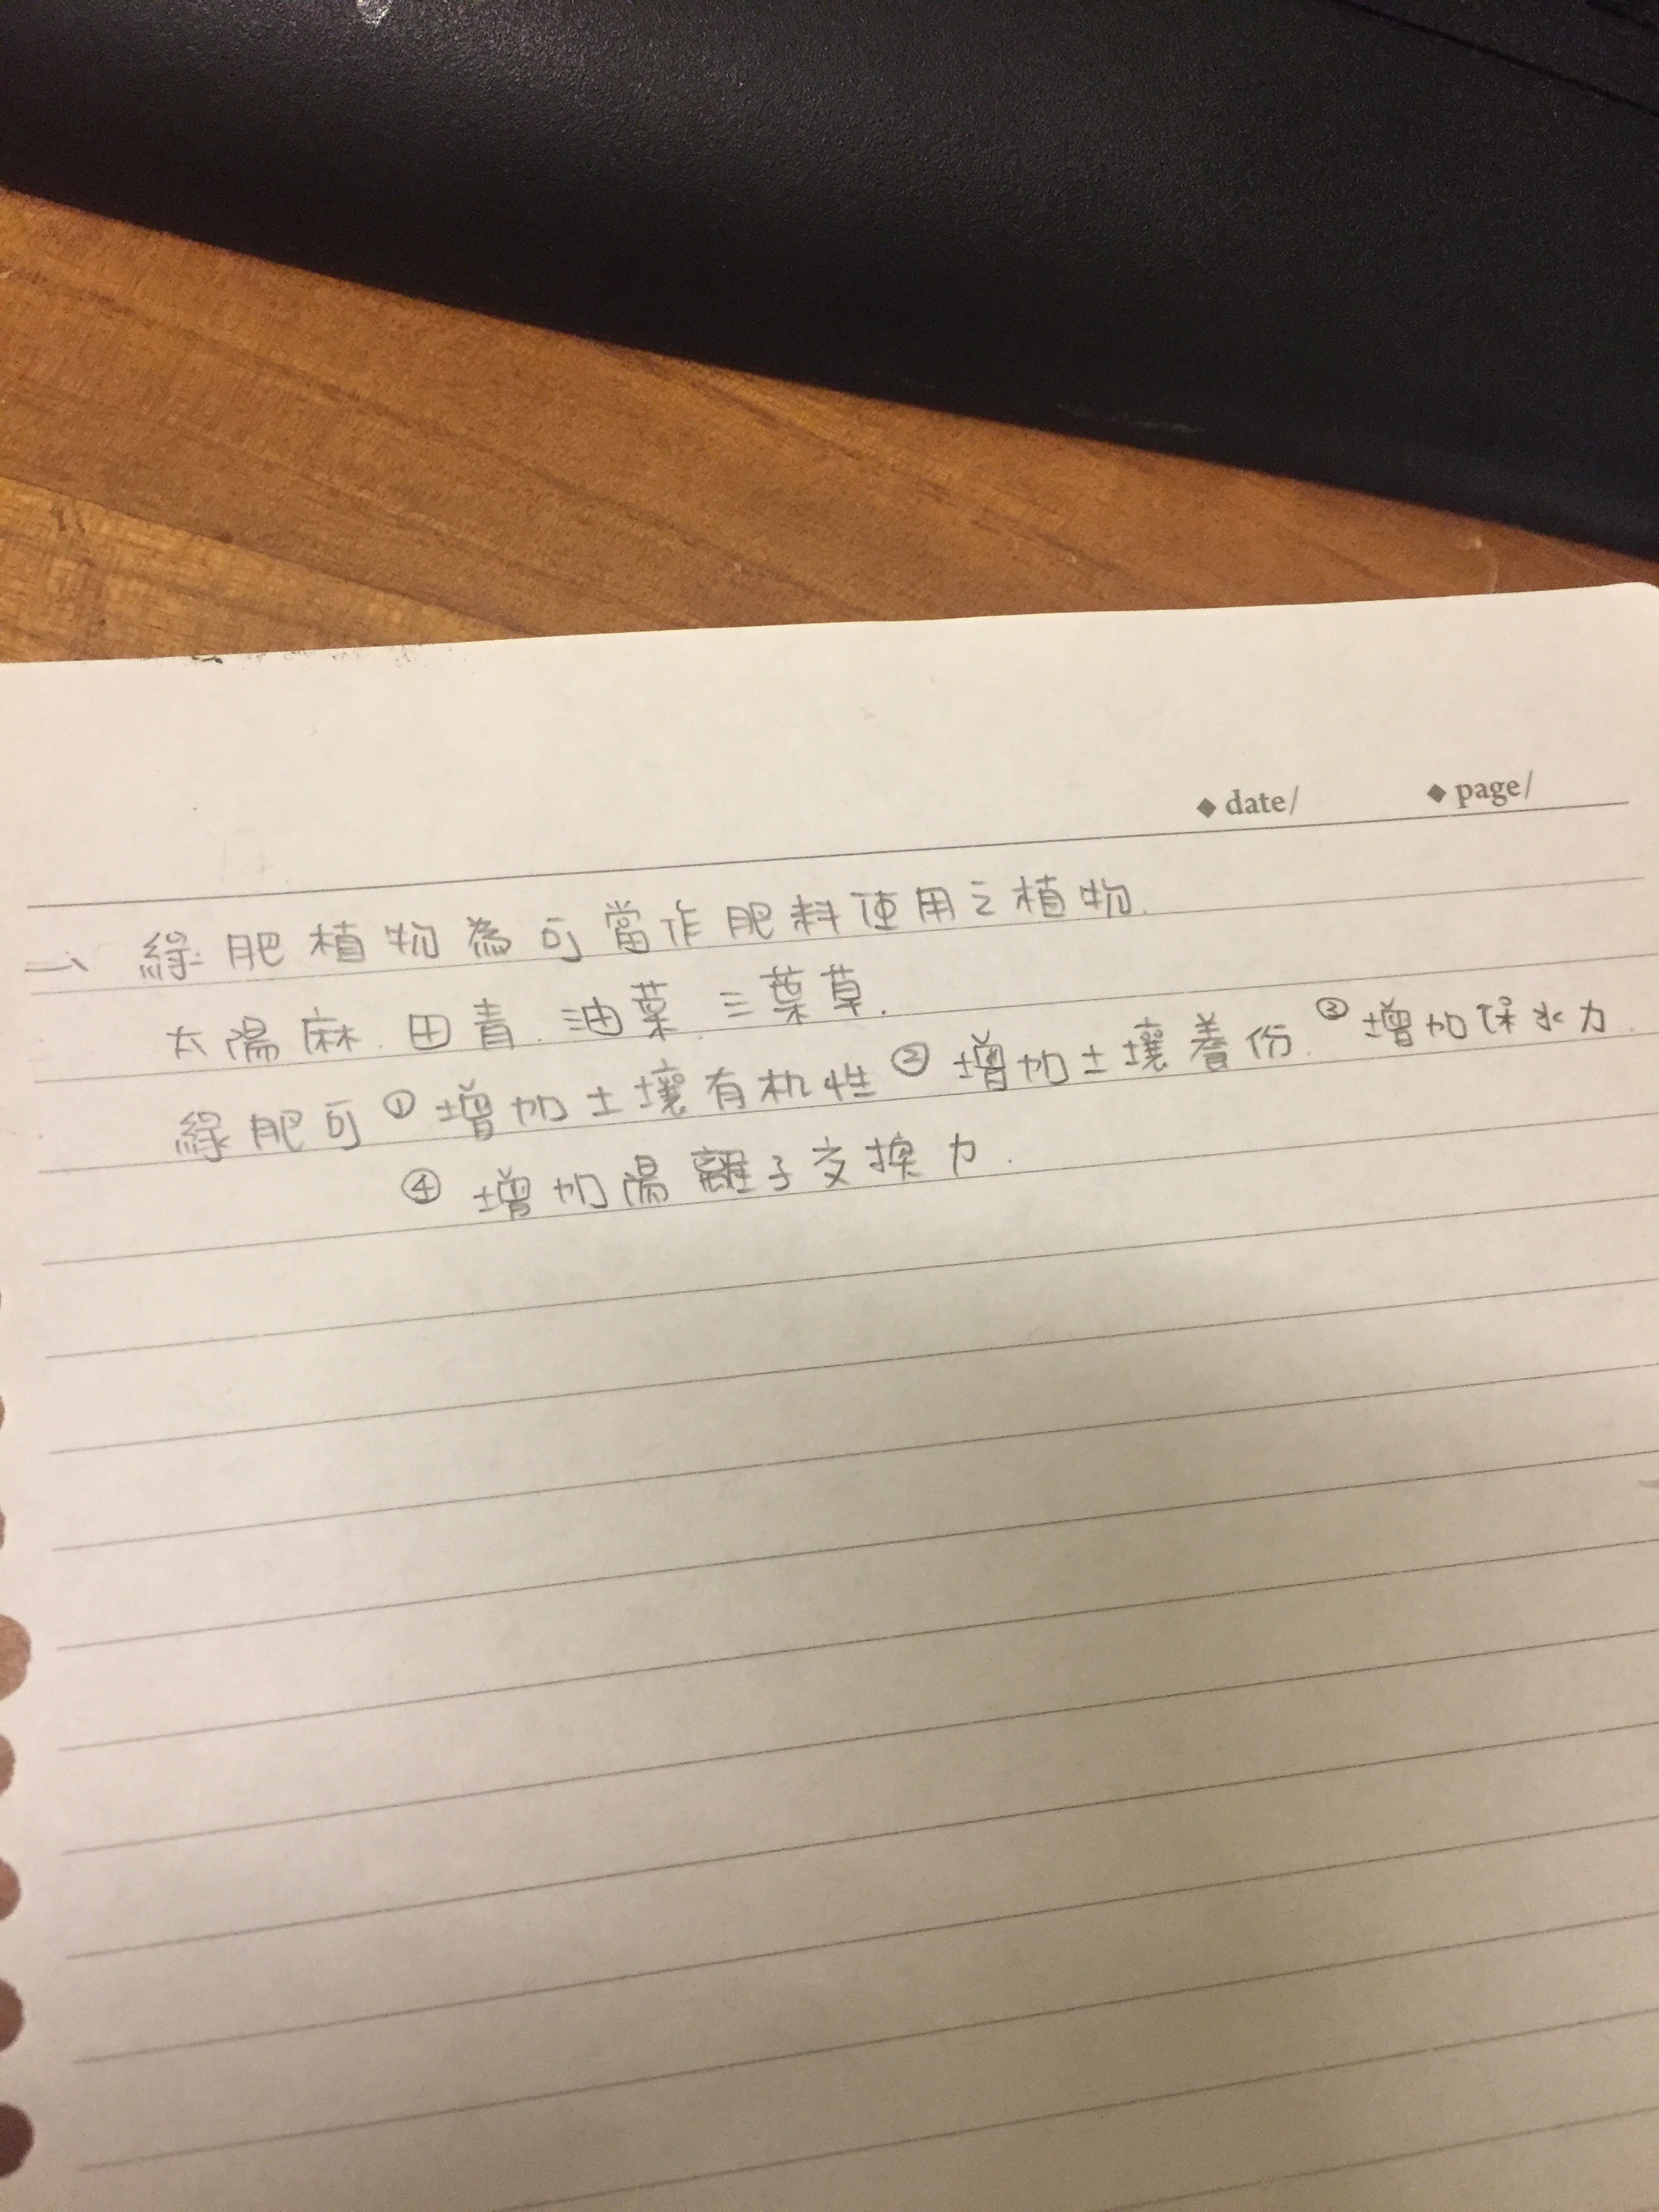 ◆ date/ ◆ page/
一、綠肥植物為可當作肥料使用之植物.
太陽麻.田青.油菜.三葉草.
綠肥可①增加土壤有机性②增加土壤養份.③增加保水力.
④增加陽離子交換力.